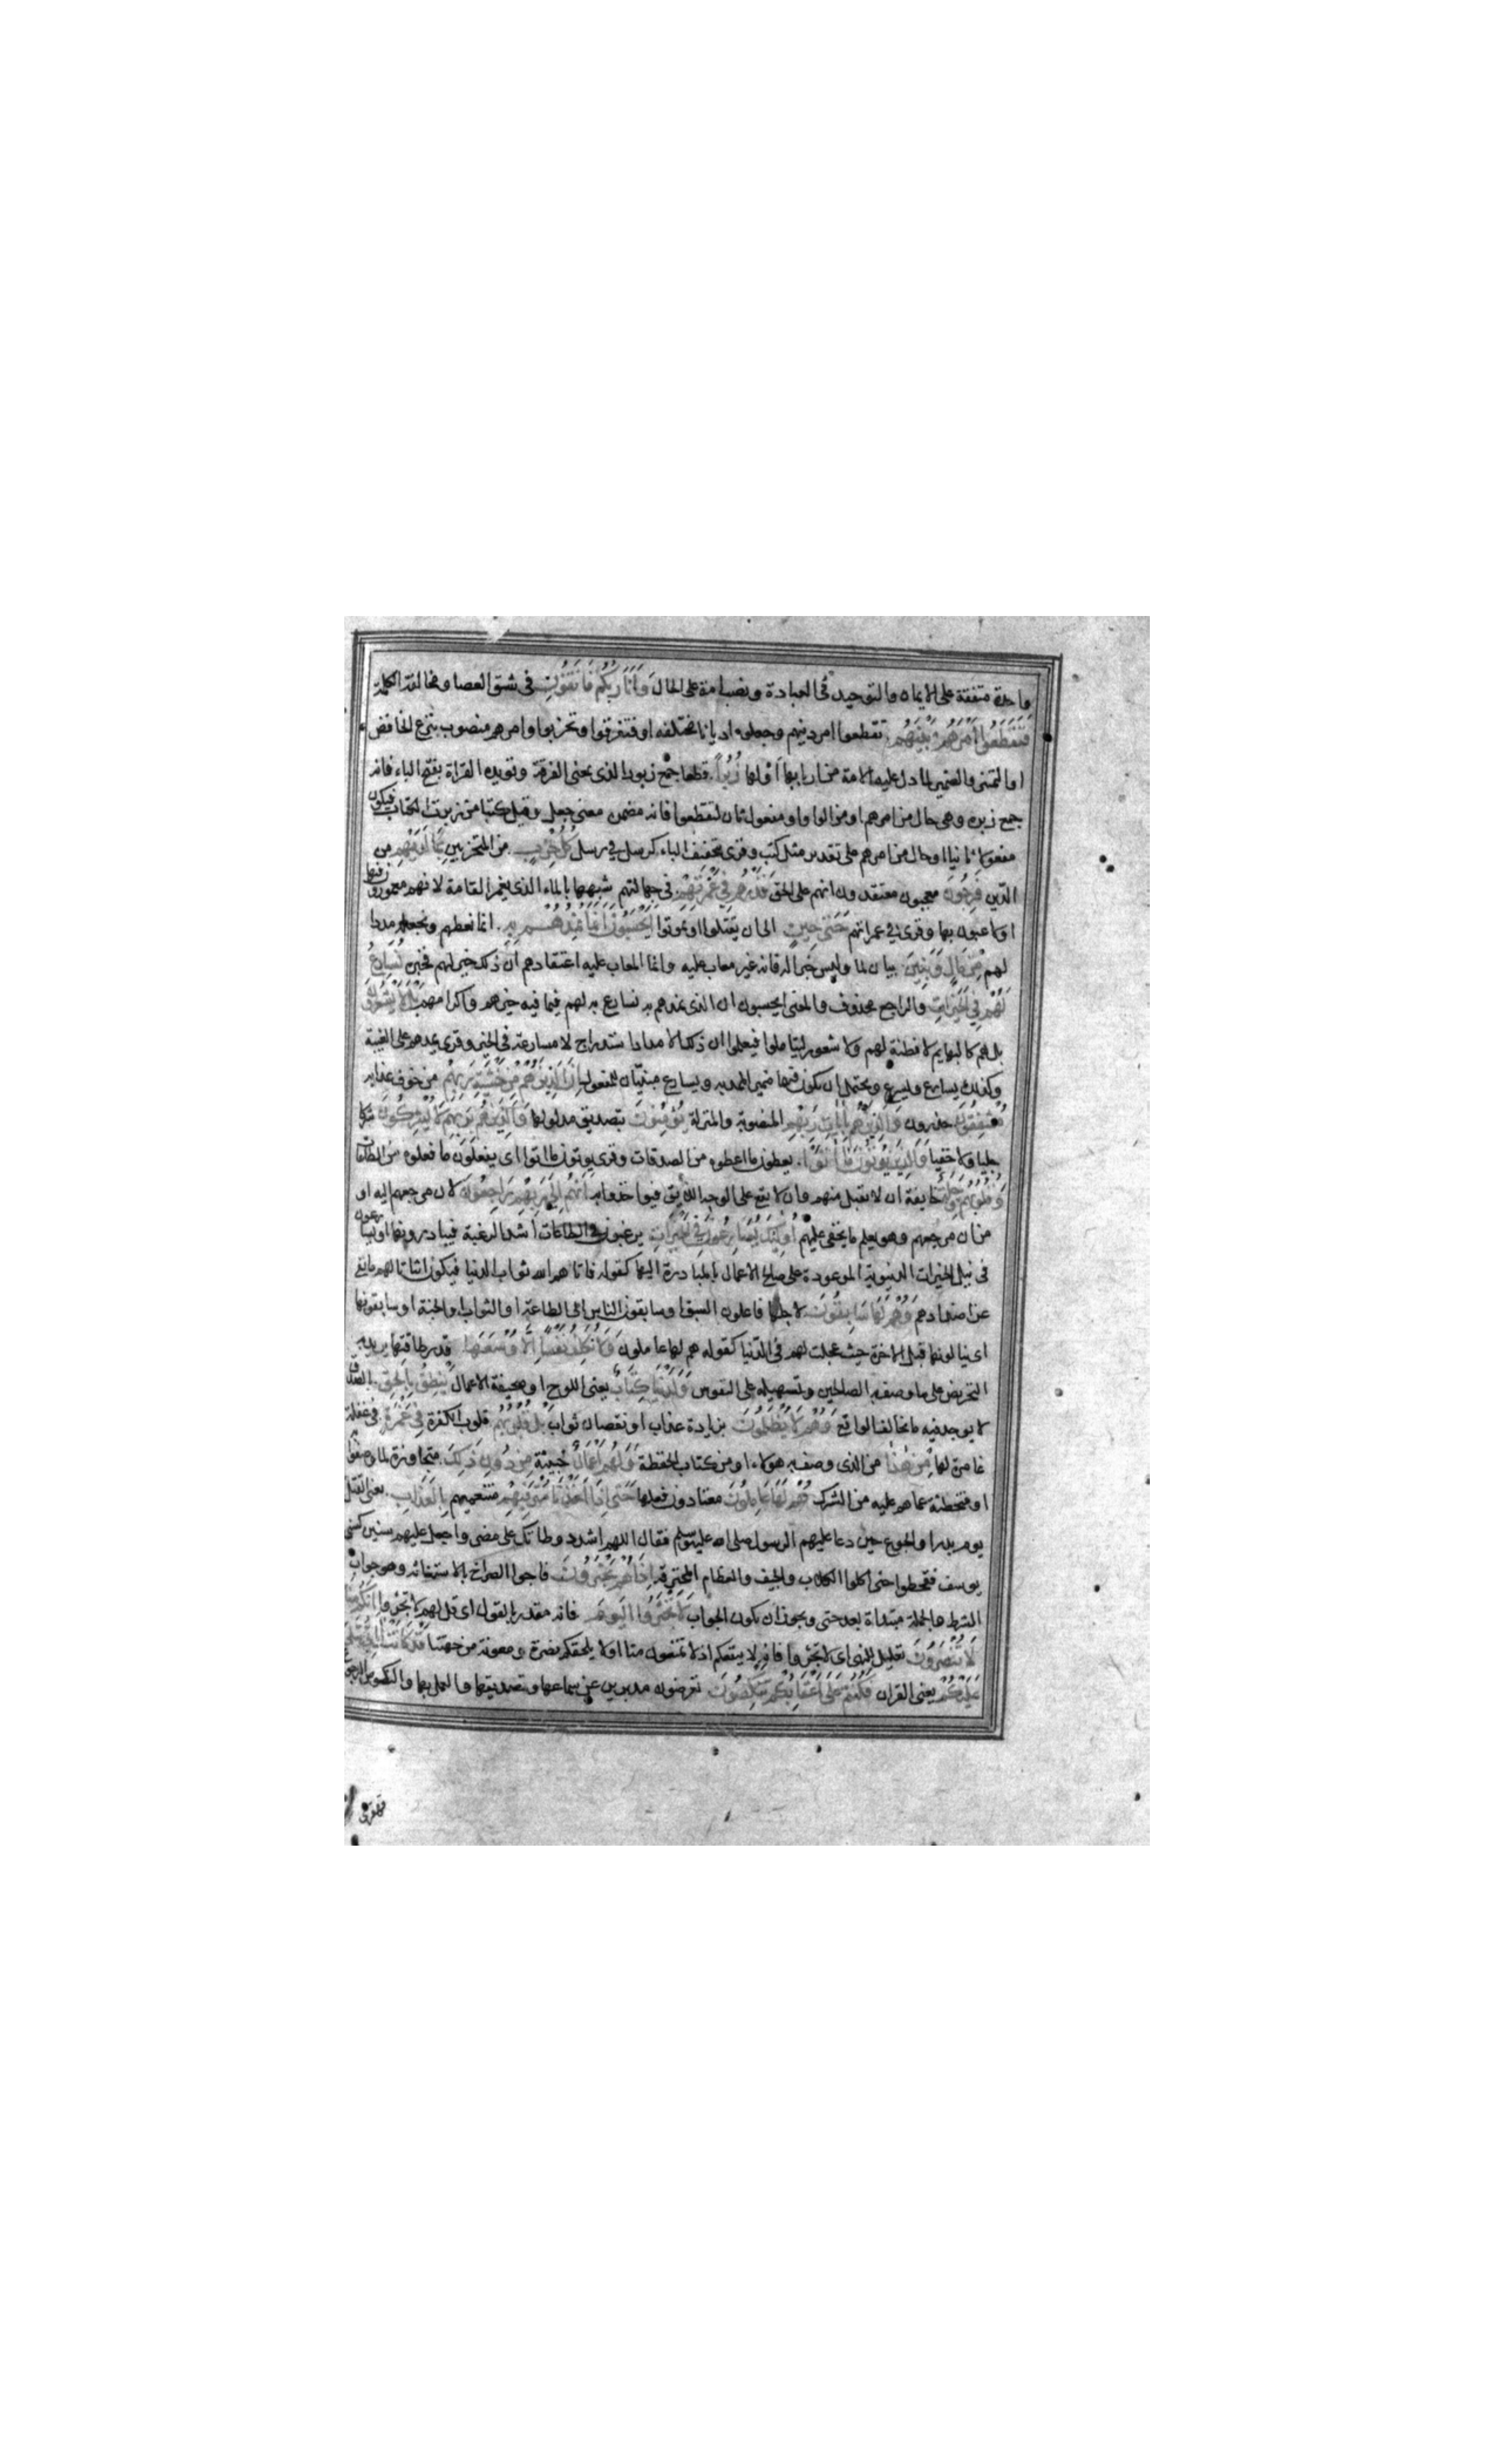 واحدة متفقة على الايمان والتوحيد في العبادة ونصب امة على الحال وَأَنَا رَبُّكُمْ فَاتَّقُونِ في شق العصا ومخالفة الكلمة
فَتَقَطَّعُوا أَمْرَهُمْ بَيْنَهُمْ تقطعوا امر دينهم وجعلوه اديانا مختلفه او فتفرقوا وتحزبوا وامرهم منصوب بنزع الخافض
او التمييز والضمير لما دل عليه الامة من اربابها او لها زُبُرًا قطعا جمع زبور الذي بمعنى الفرقة ويؤيده القراة بفتح الباء فانه
جمع زبرة وهي حال من امرهم او من الواو او مفعول ثان لتقطعوا فانه مضمن معنى جعل وقيل كتبا من زبرت الكتاب فيكون
مفعولا ثانيا او حال من امرهم على تقدير مثل كتب وقرئ بتخفيف الباء كرسل في رسل كُلُّ حِزْبٍ من المتحزبين بِمَا لَدَيْهِمْ من
الدين فَرِحُونَ معجبون معتقدون انهم على الحق فَذَرْهُمْ فِي غَمْرَتِهِمْ في جهالتهم شبهها بالماء الذي يغمر القامة لانهم مغمورون فيها
او لاعبون بها وقرئ في غمراتهم حَتَّى حِينٍ الى ان يقتلوا او يموتوا أَيَحْسَبُونَ أَنَّمَا نُمِدُّهُمْ بِهِ انما نعطهم ونجعله مددا
لهم مِنْ مَالٍ وَبَنِينَ بيان لما وليس خبرا له فانه غير معاب عليه وانما المعاب عليه اعتقادهم ان ذلك خير لهم فخبره نُسَارِعُ
لَهُمْ فِي الْخَيْرَاتِ والراجع محذوف والمعنى ايحسبون ان الذي نمدهم به نسارع به لهم فيما فيه خيرهم واكرامهم بَلْ لَا يَشْعُرُونَ
بل هم كالبهايم لا فطنة لهم ولا شعور ليتاملوا فيعلموا ان ذلك الامداد استدراج لا مسارعة في الخير وقرئ يمدهم على الغيبة
وكذلك يسارع ويسرع ويحتمل ان يكون فيها ضمير الممد به ويسارع مبنيا للمفعول إِنَّ الَّذِينَ هُمْ مِنْ خَشْيَةِ رَبِّهِمْ من خوف عذابه
مُشْفِقُونَ حذرون وَالَّذِينَ هُمْ بِآيَاتِ رَبِّهِمْ المنصوبة والمنزلة يُؤْمِنُونَ بتصديق مدلولها وَالَّذِينَ هُمْ بِرَبِّهِمْ لَا يُشْرِكُونَ شركا
جليا ولا خفيا وَالَّذِينَ يُؤْتُونَ مَا آتَوْا يعطون ما اعطوه من الصدقات وقرئ يوتون ما اتوا اى يفعلون ما فعلوه من الطاعات
وَقُلُوبُهُمْ وَجِلَةٌ خايفة ان لا تقبل منهم وان لا تقع على الوجه اللايق فيواخذوا به أَنَّهُمْ إِلَى رَبِّهِمْ رَاجِعُونَ لان مرجعهم اليه او
من ان مرجعهم وهو يعلم ما يخفى عليهم أُولَئِكَ يُسَارِعُونَ فِي الْخَيْرَاتِ يرغبون في الطاعات اشد الرغبة فيبادرونها او يسارعون
في نيل الخيرات الدنيوية الموعودة على صالح الاعمال بالمبادرة اليها كقوله فاتاهم الله ثواب الدنيا فيكون اثباتا لهم ما نفى
عن اضدادهم وَهُمْ لَهَا سَابِقُونَ لاجلها فاعلون السبق او سابقون الناس الى الطاعة او الثواب او الجنة او سابقونها
اى ينالونها قبل الاخرة حيث عجلت لهم في الدنيا كقوله هم لها عاملون وَلَا نُكَلِّفُ نَفْسًا إِلَّا وُسْعَهَا قدر طاقتها يريد به
التحريض على ما وصف به الصالحين وتسهيله على النفوس وَلَدَيْنَا كِتَابٌ يعني اللوح او صحيفة الاعمال يَنْطِقُ بِالْحَقِّ بالصدق
لا يوجد فيه ما يخالف الواقع وَهُمْ لَا يُظْلَمُونَ بزيادة عذاب او نقصان ثواب بَلْ قُلُوبُهُمْ قلوب الكفرة فِي غَمْرَةٍ في غفلة
غامرة لها مِنْ هَذَا من الذي وصف به هولاء او من كتاب الحفظة وَلَهُمْ أَعْمَالٌ خبيثة مِنْ دُونِ ذَلِكَ متجاوزة لما وصفوا
او متخطئة عما هم عليه من الشرك هُمْ لَهَا عَامِلُونَ معتادون فعلها حَتَّى إِذَا أَخَذْنَا مُتْرَفِيهِمْ متنعميهم بِالْعَذَابِ يعنى القتل
يوم بدر او الجوع حين دعا عليهم الرسول صلى الله عليه وسلم فقال اللهم اشدد وطاتك على مضر واجعل عليهم سنين كسنى
يوسف فقحطوا حتى اكلوا الكلاب والجيف والعظام المحترقة إِذَا هُمْ يَجْأَرُونَ فاجوا الصراخ بالاستغاثة وهو جواب
الشرط والجملة مبتداة بعد حتى ويجوز ان يكون الجواب لَا تَجْأَرُوا الْيَوْمَ فانه مقدر بالقول اى قيل لهم لا تجئروا إِنَّكُمْ مِنَّا
لَا تُنْصَرُونَ تعليل للنهي اى لا تجئروا فانه لا ينفعكم اذ لا تمنعون منا او لا يلحقكم نصرة ومعونة من جهتنا قَدْ كَانَتْ آيَاتِي تُتْلَى
عَلَيْكُمْ يعنى القران فَكُنْتُمْ عَلَى أَعْقَابِكُمْ تَنْكِصُونَ تعرضون مدبرين عن سماعها وتصديقها والعمل بها والنكوص الرجوع
قهقرى